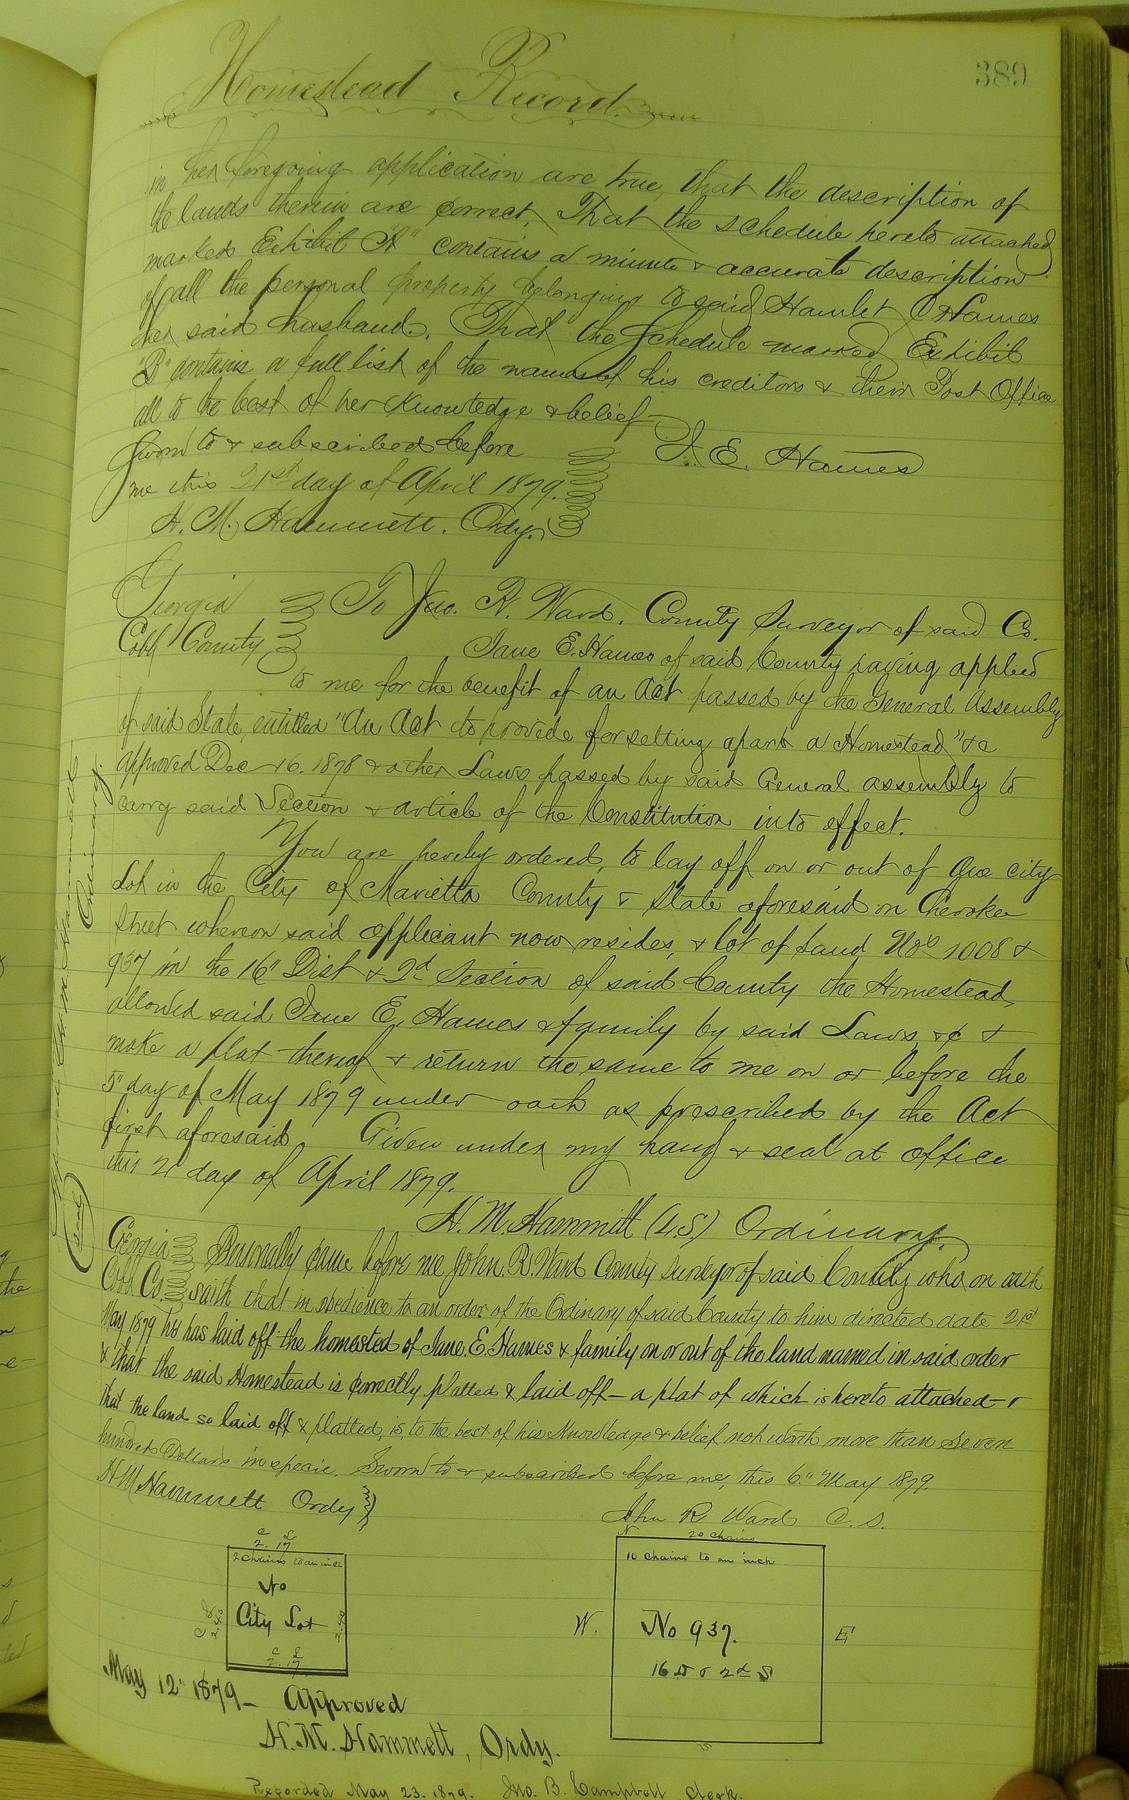 Homestead Record.
389
in her foregoing application are true, that the description of
the lands therein are correct, That the schedule hereto attached
marked Exhibit "A" contains a minute & accurate description
of all the personal property belonging to said Hamlet Hames
her said husband. That the schedule marked Exhibit
"B" contains a full list of the names of his creditors & their Post Office
all to the best of her knowledge & belief
Sworn to & subscribed before
J. E. Hames
me this 21st day of April 1879.
H. M. Hammett. Ordy.
Georgia To Jno. R. Ward. County Surveyor of said Co.
Cobb County Jane E. Hames of said County having applied
to me for the benefit of an Act passed by the General Assembly
of said State, entitled "An Act to provide for setting apart a Homestead" &c
approved Dec 16. 1878 & other Laws passed by said General assembly to
carry said Section & article of the Constitution into effect.
You are hereby ordered, to lay off on or out of one city
Lot in the City of Marietta County & State aforesaid on Cherokee
Street whereon said applicant now resides, & lot of Land Nos 1008 &
937 in the 16" Dist & 2d Section of said County the Homestead
allowed said Jane E. Hames & family by said Laws, &c &
make a plat thereof & return the same to me on or before the
5" day of May 1879 under oath as prescribed by the Act
first aforesaid. Given under my hand & seal at office
this 21 day of April 1879.
H. M. Hammett (L.S.) Ordinary.
Georgia Personally came before me John. R. Ward County Surveyor of said County who on oath
Cobb Co. saith that in obedience to an order of the Ordinary of said County to him directed date 21st
May 1879 he has laid off the homested of Jane. E. Hames & family on or out of the land named in said order
& that the said Homestead is correctly platted & laid off – a plat of which is hereto attached – &
that the land so laid off & platted, is, to the best of his Knowledge & belief not worth more than Seven
hundred Dollars in specie. Sworn to & subscribed before me, this 6" May 1879.
H M Hammett Ordy
John R Ward C. S.
2 chains to an inch
No
City Lot
N
20 chains
10 chains to an inch
W.
No 937.
E
16 D & 2d S
S
May 12" 1879 – Approved
H. M. Hammett, Ordy.
Recorded May 23. 1879. Jno. B. Campbell Clerk.